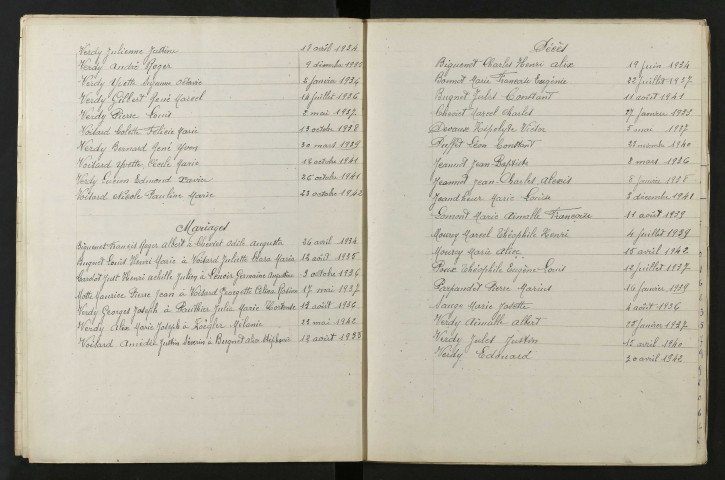 Verdy Julienne Justine 18 avril 1934
Verdy André Roger 9 décembre
Verdy Yvette Suzanne 6 janvier 1936
Verdy Gilbert René Marcel 14 juillet 1936
Verdy Pierre Louis 2 mai 1937
Voitard Colette Félicie Marie 13 octobre 1938
Verdy Bernard René Yvon 20 mars 1939
Voitard Yvette Cécile Marie 14 octobre 1941
Verdy Lucien Edmond Xavier 26 octobre 1941
Voitard Nicole Pauline Marie 23 octobre 1942
Mariages
Francis Roger Albert à Edith Augusta 24 avril 1934
Bugnet Louis Henri Marie à Voisard Juliette Clara Maria 12 août 1935
Just Henri Achille à Lenoir Germaine 3 octobre 1936
Motte Maurice Pierre Jean à Voisard Georgette Célina 17 mai 1937
Verdy Georges Joseph à Julia Marie 12 août 1936
Verdy Alix Marie Joseph à Mélanie 23 mai 1942
Voisard Amédée Justin Séverin à Bugnet 12 août 1933
Décès
Charles Henri Alix 19 juin 1934
Bonnot Marie Françoise Eugénie 22 juillet 1937
Bugnet Jules Constant 11 août 1941
Marcel Charles 27 janvier 1933
Devaux Hippolyte Victor 5 mars 1937
Léon Constant 23 1940
Jeannot Jean Baptiste 3 mars 1936
Jeannot Jean Charles Alexis 8 janvier 1938
Marie Louise 3 décembre 1941
Lomont Marie Armalle Françoise 11 août 1939
Mourey Marcel Théophile Henri 4 juillet 1939
Mourey Marie Alice 15 avril 1942
Théophile Eugène Louis 12 juillet 1937
Pierre Marius 16 janvier 1939
Marie Josette 4 août 1936
Verdy Armalle Albert 25 janvier 1937
Verdy Jules Justin 15 avril 1940
Verdy Edouard 20 avril 1942